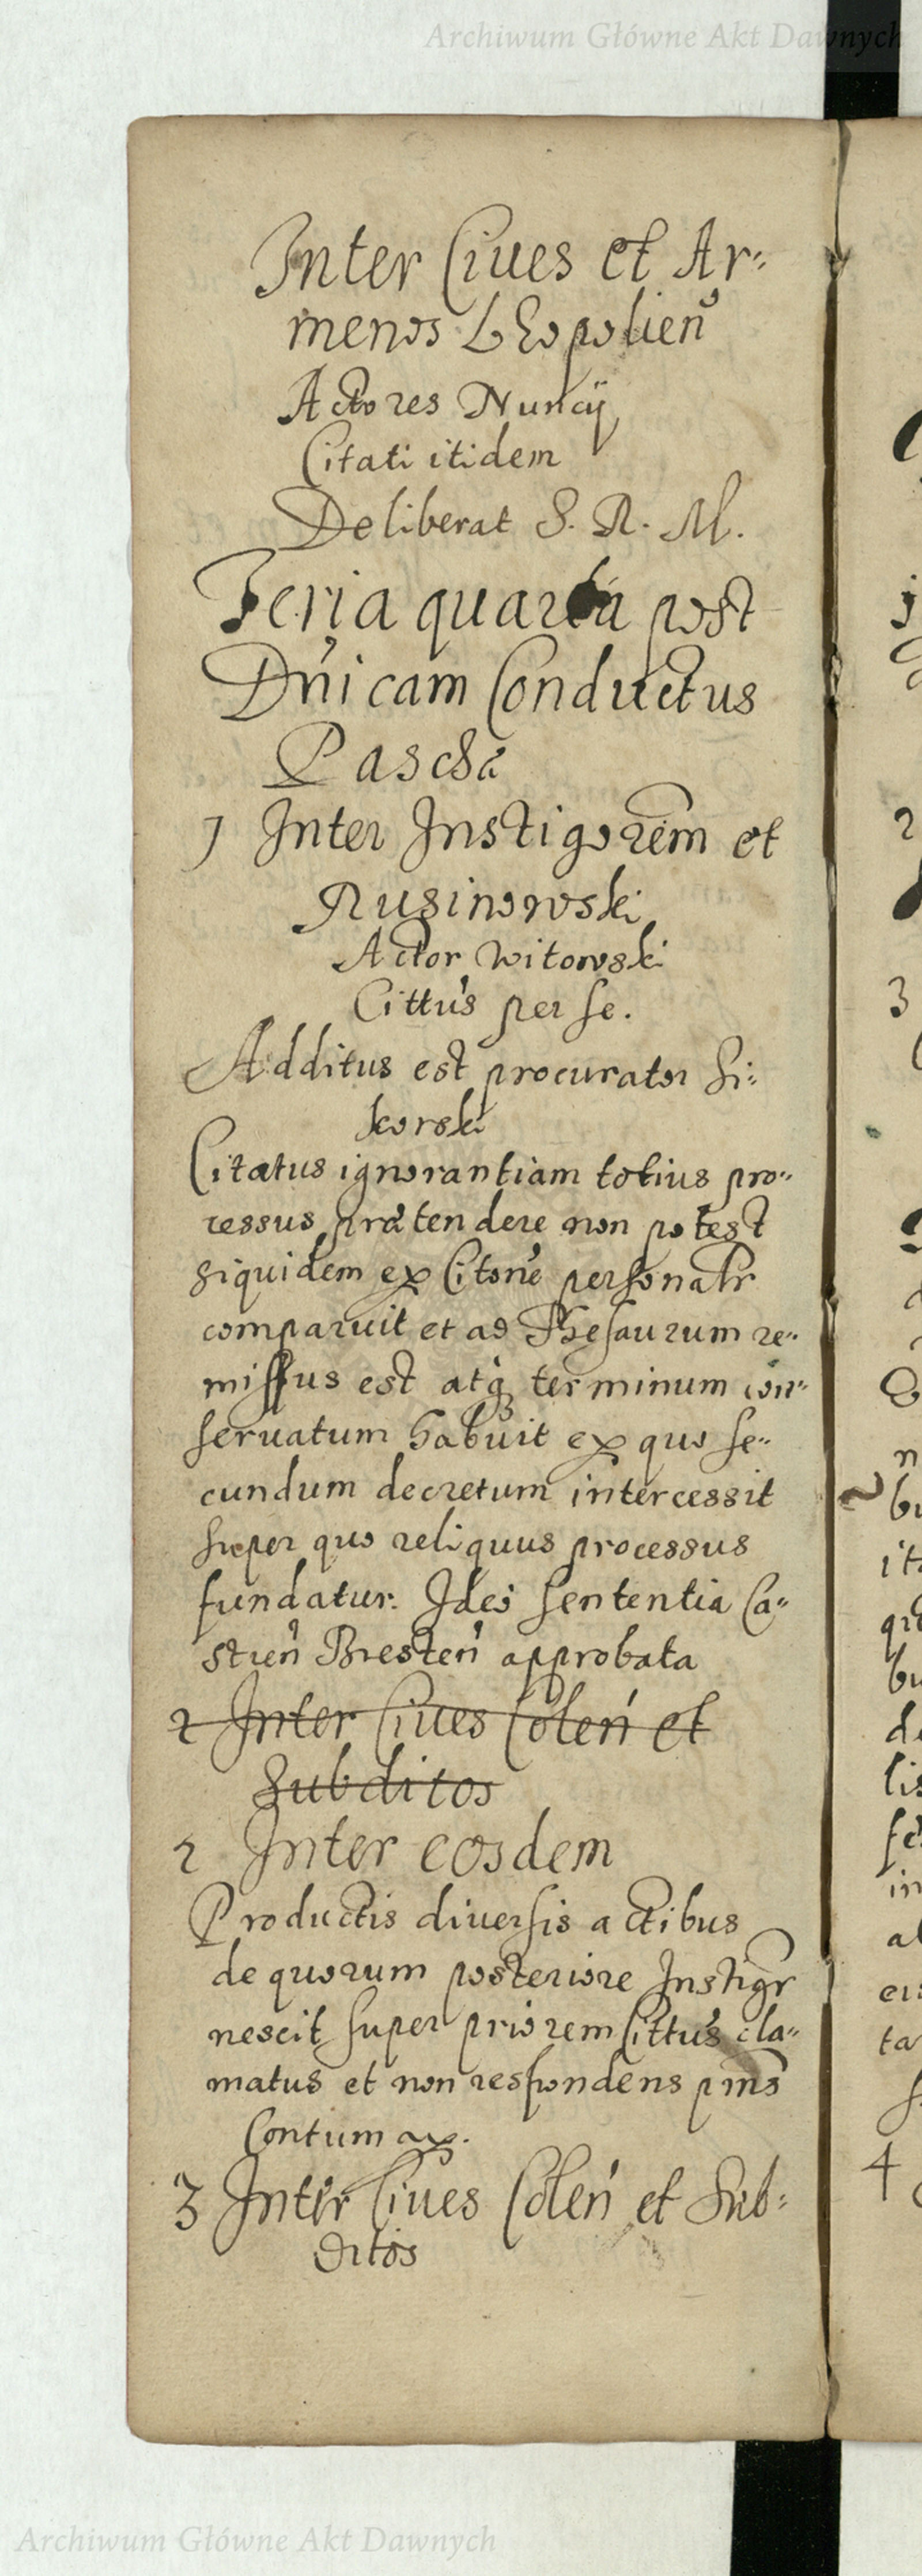 Archiwum Główne Akt Dawnych
Inter Ciues et Ar-
menos LEopolien̄
Actores Nuncij
Citati itidem
Deliberat S. R. M.
Feria quarta post
Dn̄icam Conductus
Pascha
1 Inter Instigorem et
Rusinowski
Actor Witowski
Cittus per se.
Additus est procurator Si-
korski
Citatus ignorantiam totius pro-
cessus prætendere non potest
siquidem ex Citone personalr
comparuit et ad Thesaurum re-
missus est atq terminum con-
seruatum habuit ex quo se-
cundum decretum intercessit
super quo reliquus processus
fundatur. Ideo sententia Ca-
stren̄ Bresten̄ approbata
2 Inter Ciues Colen̄ et
Subditos
2 Inter eosdem
Productis diuersis actibus
de quorum posteriore Instigr
nescit super priorem Cittus cla-
matus et non respondens
Contumax.
3 Inter Ciues Colen̄ et Sub-
ditos
Archiwum Główne Akt Dawnych